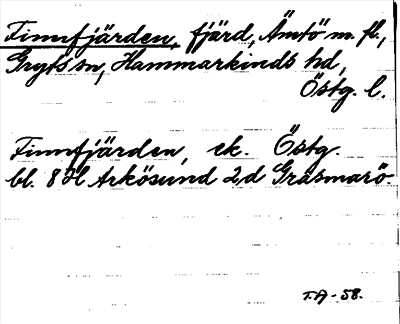 Finnfjärden, fjärd, Ämtö m. fl.,
Gryts sn, Hammarkinds hd,
Östg. l.
Finnfjärden, ek. Östg.
bl. 8 H Arkösund 2d Gräsmarö
T.A-58.